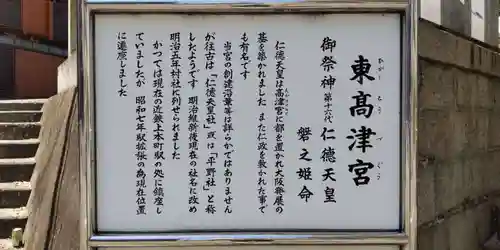 東髙津宮
ひがし こう づ ぐう
御祭神 第十六代 仁德天皇
磐之姫命
仁徳天皇は高津宮に都を置かれ大阪発展の
基を築かれました また仁政を敷かれた事で
も有名です
当宮の創建沿革等は詳らかではありません
が往古は「仁徳天皇社」或は「平野社」と称
したようです 明治維新後現在の社名に改め
明治五年村社に列せられました
かつては現在の近鉄上本町駅の処に鎮座し
ていましたが 昭和七年駅拡張の為現在位置
に遷座しました